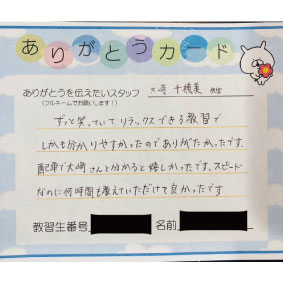 ありがとうカード
ありがとうを伝えたいスタッフ
(フルネームでお願いします!)
大崎 千穂美
ずっと笑っていてリラックスできる教習で
しかも分かりやすかったのでありがたかったです。
配車で大崎さんと分かると嬉しかったです。スピード
なのに何時間も教えていただけて良かったです
教習生番号 名前